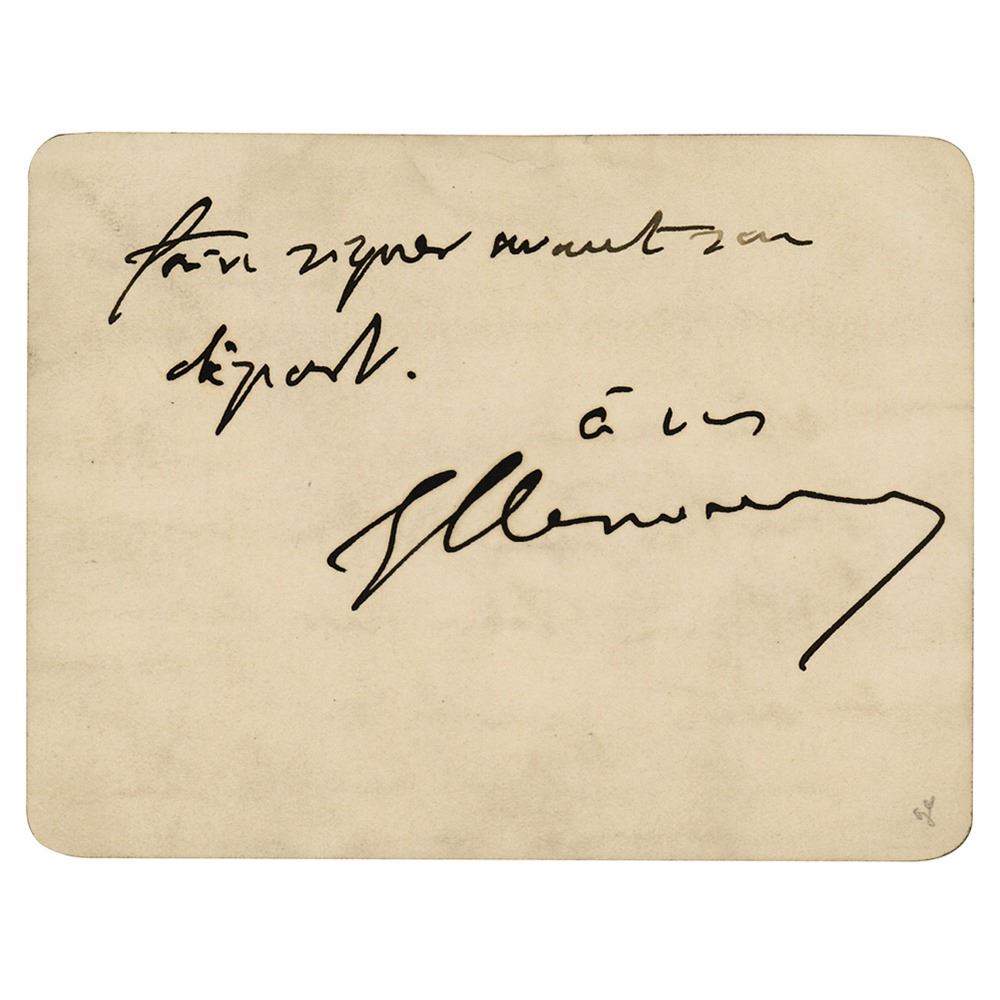 faire signer avant son
départ.
à vous
GClemenceau